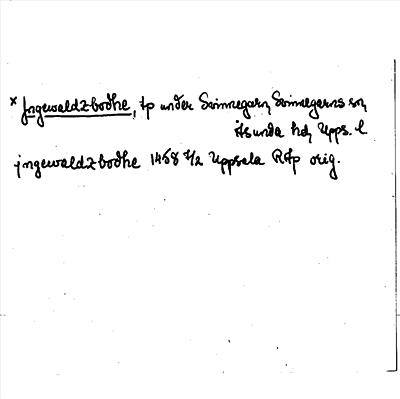 × Jngewaldzbodhe, tp under Svinnegarn, Svinnegarns sn,
Åsunda hd, Upps. l
jngewaldzbodhe 1458 7/2 Uppsala RAp orig.